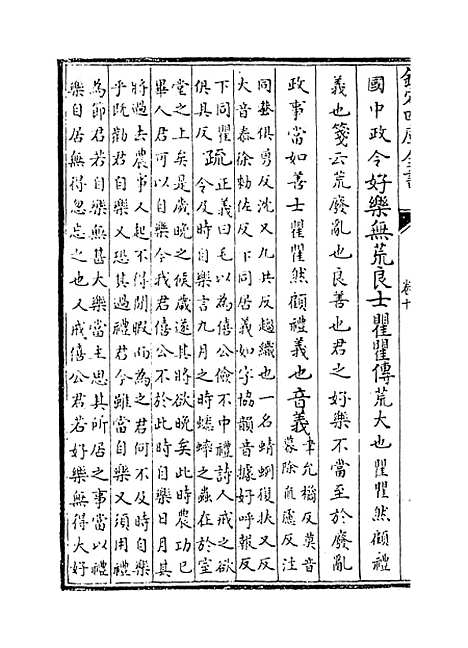 欽定四庫全書
卷十
國中政令好樂無荒良士瞿瞿傳荒大也瞿瞿然顧禮
義也箋云荒廢亂也良善也君之好樂不當至於廢亂
政事當如善士瞿瞿然顧禮義也音義
聿允橘反莫音
暮除直慮反注
同蛬俱勇反沈又九共反趨織也一名蜻蛚復扶又反
大音泰徐勅佐反下同居義如字協韻音據好呼報反
下同瞿
俱具反
疏
正義曰毛以為僖公儉不中禮詩人戒之欲
令及時自樂言九月之時蟋蟀之蟲在於室
堂之上矣是歲晚之候歲遂其將欲晚矣此時農功已
畢人君可以自樂今我君僖公不於此時自樂日月其
將過去農事又起不得閒暇而為之君何不及時自樂
乎既勸君自樂又恐其過禮君今雖當自樂又須用禮
為節君若自樂無甚大樂當主思其所居之事當以禮
樂自居無得忽忘之也又戒僖公君若好樂無得大好